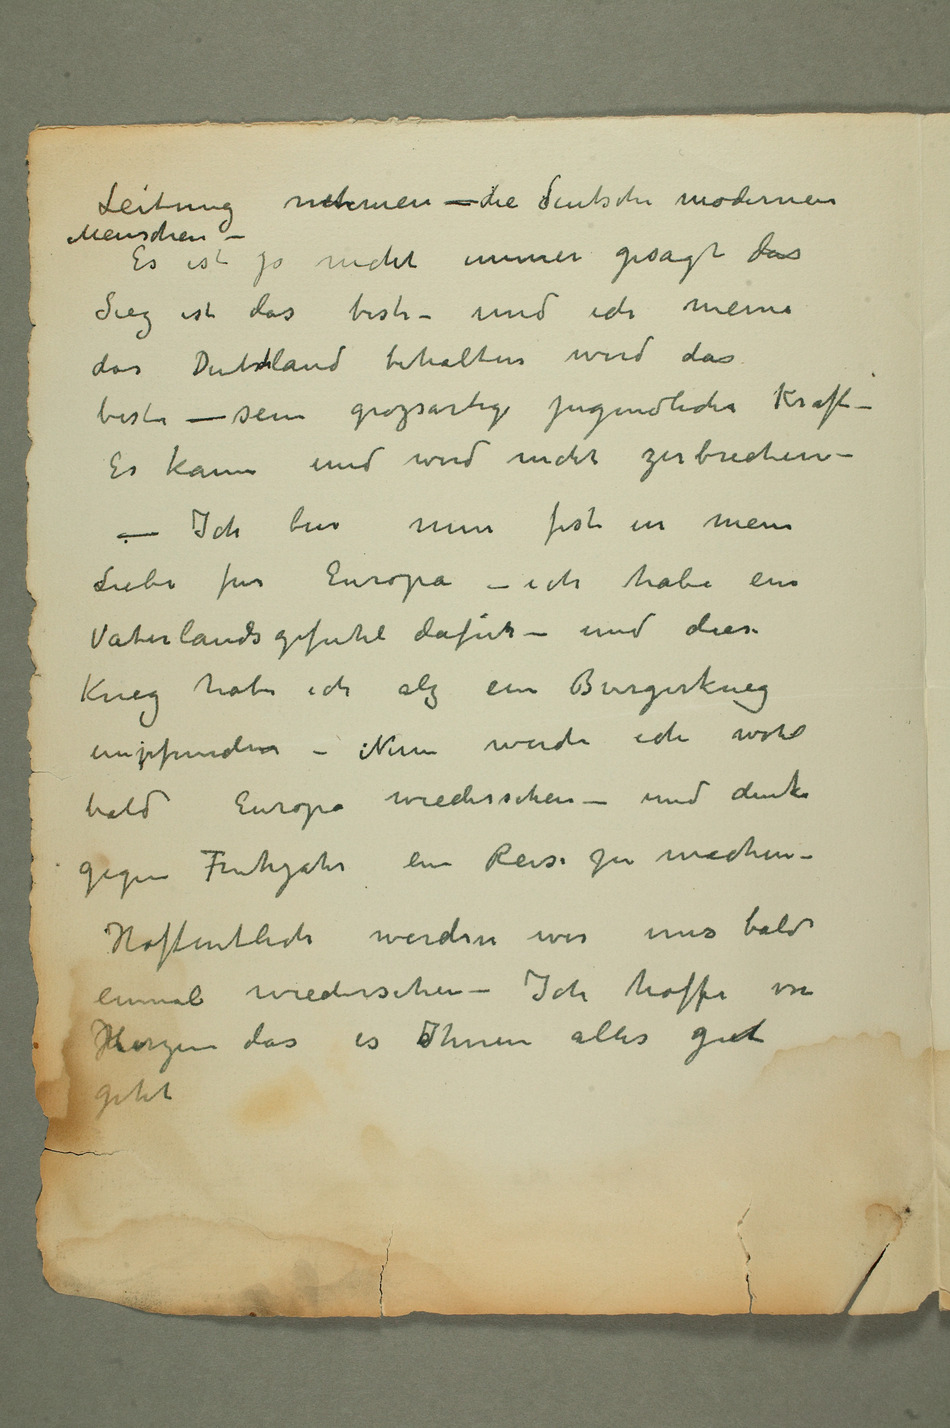 Leitung nehmen — die deutsche modernen
Menschen —
Es ist ja nicht immer gesagt das
Sieg ist das beste — und ich meine
das Deutschland behalten wird das
beste — sein grozsartige jugendliche Kraft —
Es kann und wird nicht zerbrechen —
— Ich bin nun fest in mein
Liebe für Europa — ich habe ein
Vaterlandsgefühl dafür — und diese
Krieg habe ich alz ein Burgerkrieg
empfunden — Nun werde ich wohl
bald Europa wiedersehen — und denke
gegen Fruhjahr ein Reise zu machen —
Hoffentlich werden wir uns bald
einmal wiedersehen — Ich hoffe von
Herzen das es Ihnen alles gut
geht